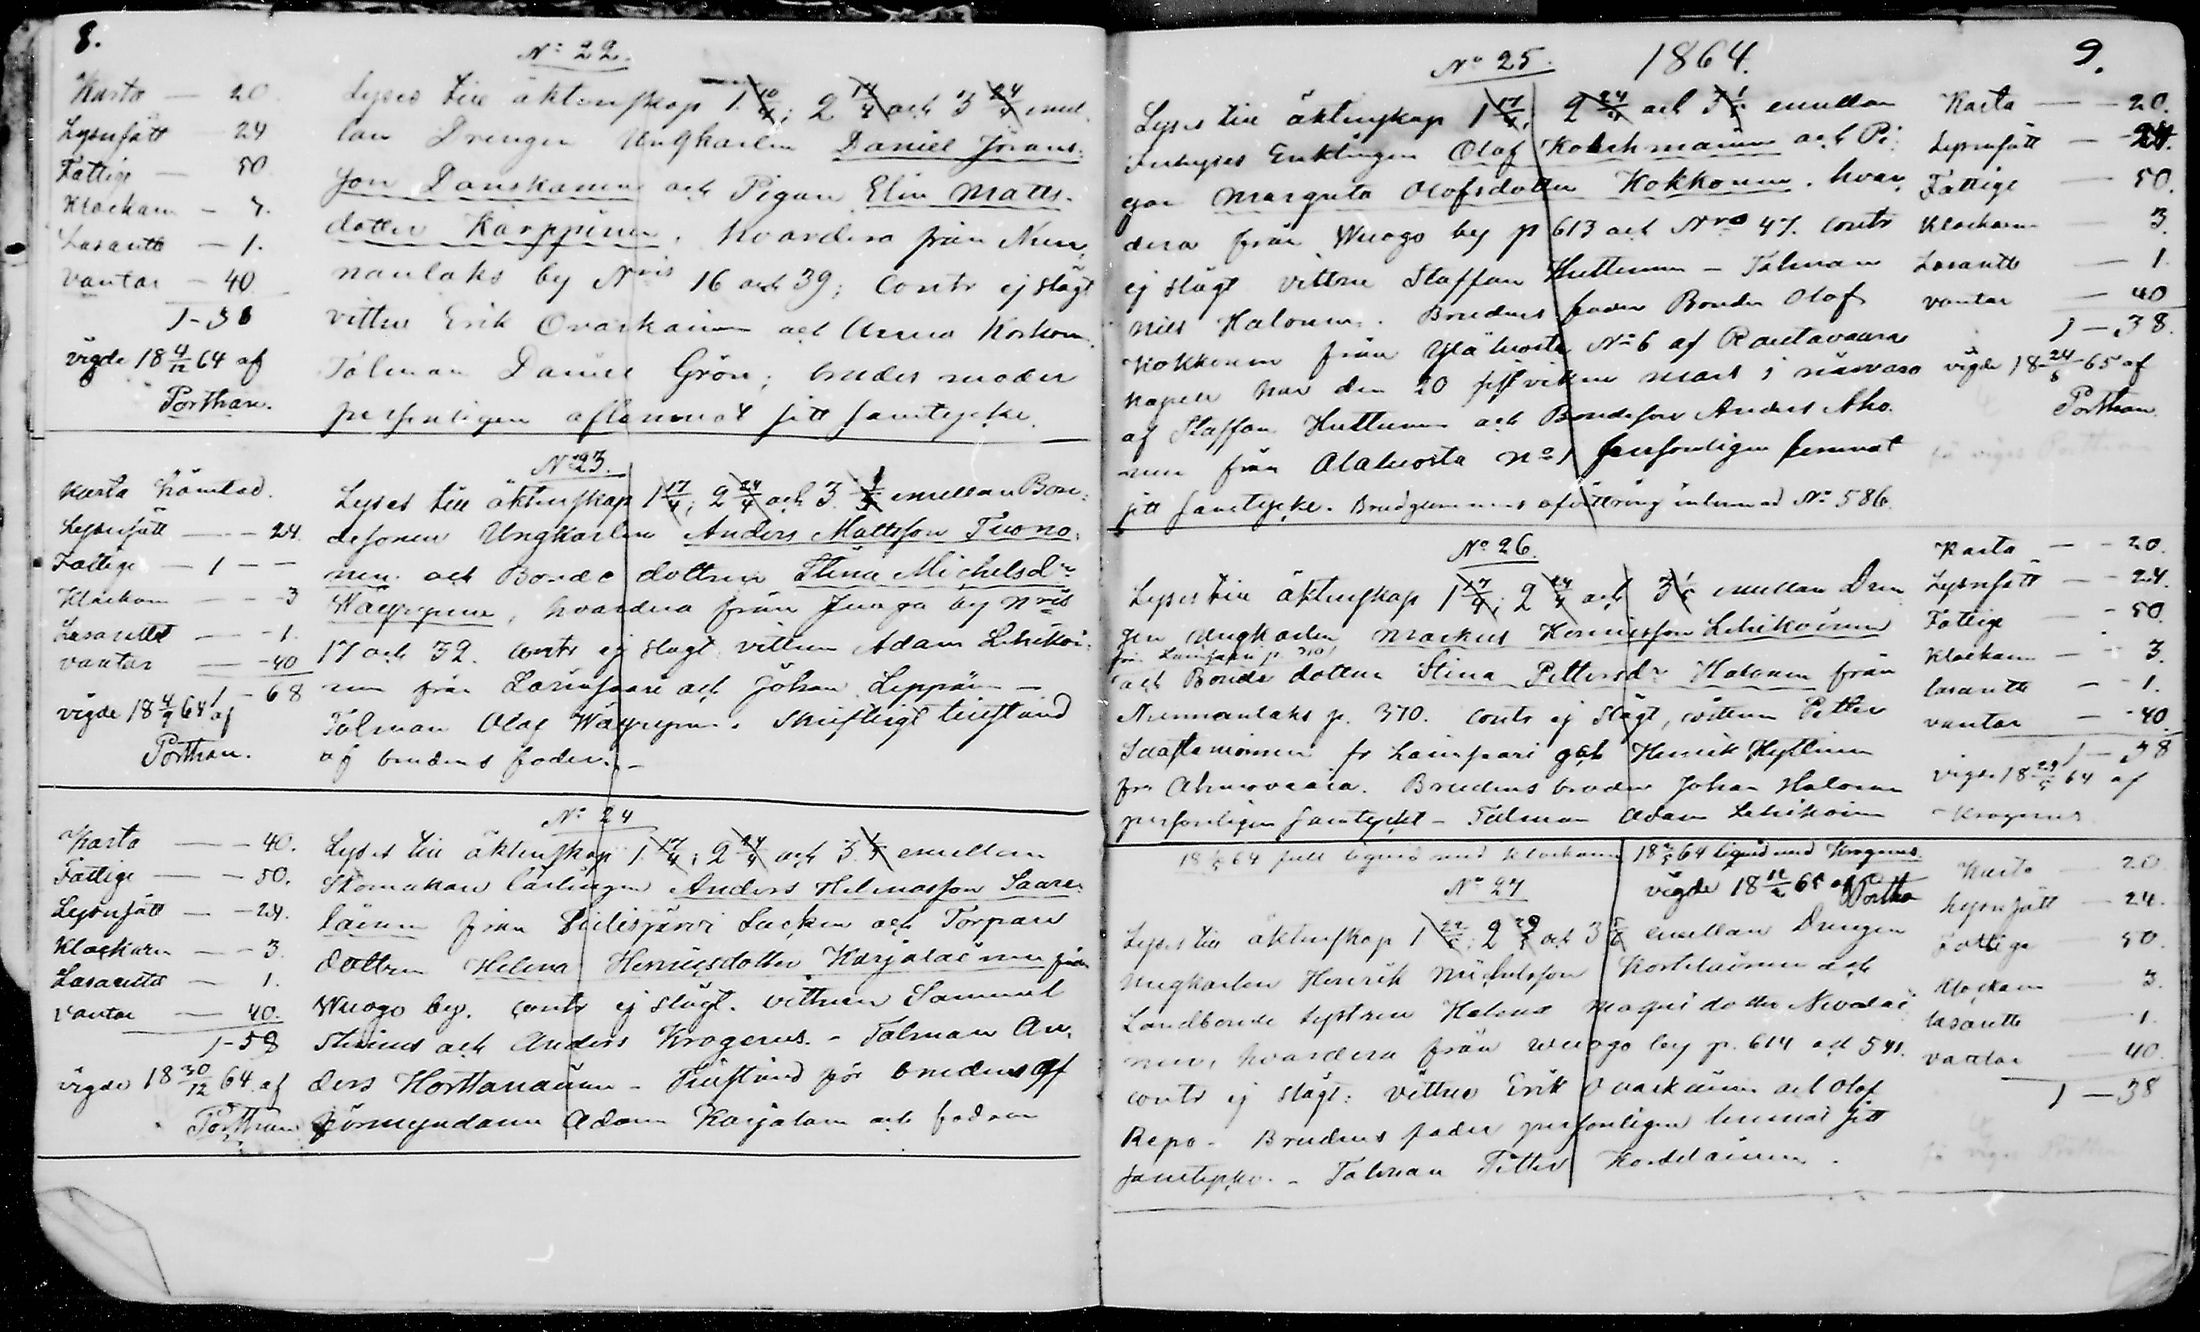 8.
No 22.
Karta — 20.
Lysnsätt 24
Fattige — 50.
Klockarn — 3.
Lasarette — 1.
vantar — 40
1-38
vigde 18 4/12 64 af
Porthan.
Lyses till äktenskap 1 10/4; 2 17/4 och 3 24/4 emel
lan Drengen Ungkarlen Daniel Jörans-
son Danskanen och Pigan Elin Matts-
dotter Karppinen, hvardera från Nur-
nanlaks by Nris 16 och 39; Contr ej slägt
vittne Erik Ovaskainen och Anna Korhon.
Talman Daniel Grön; brudes moder
personligen aflemnat sitt samtycke.
No 23.
Karta hämtad.
Lysnsätt — 24.
Fattige — 1 — —
Klockarn — — 3
Lasarettet — 1.
vantar — 40
1-68
vigde 18 4/9 64 af
Porthan.
Lyses till äktenskap 1 17/4; 2 24/4 och 3 1/5 emellan Bon-
desonen Ungkarlen Anders Mattsson Tuono-
nen och Bonde dottren Stina Michelsdr
Wäyrynen, hvardera från Juuga by Nris
17 och 32. contr ej slägt vittnen Adam Lehikoi-
nen från Larinsaari och Johan Leppän —
Talman Olof Wäyrynen. Skriftligt tillstånd
af brudens fader. —
No 24
Karta — — 40.
Fattige — — 50.
Lysnsätt — — 24.
Klockarn — — 3.
Lasarette — 1.
vantar — 40.
1-58
vigde 18 30/12 64 af
Porthan
Lyses till äktenskap 1 17/4; 2 24/4 och 3 1/5 emellan
Skomakare lärlingen Anders Helenasson Saare-
läinen från Pielisjärvi Socken och Torpare
dottren Helena Henricsdotter Karjalainen från
Wuogo by. contr ej slägt. vittnen Sammel
Stenius och Anders Krogerus. - Talman An-
ders Horttanainen - Tillstånd för bruden af
förmyndaren Adam Karjalain och fadren
No 25. 1864. 9.
Lyses till äktenskap 1 17/4; 2 24/4 och 3 1/5 emellan
Enklingen Olof Kokkmainen och Pi-
gan Margreta Olofsdotter Kokkonen. hvar-
dera från Wuogo by p 613 och Nro 47. contr
ej slägt vittne Staffan Huttunen - Talman
Nils Halonen. Brudens fader Bonden Olof
Kokkonen från Yläluosta No 6 af Rautavaara
Kapell har den 20 sistvikne mars i närvaro
af Staffan Huttunen och Bondeson Anders Aho-
nen från Alaluosta No 1 personligen lemnat
sitt samtycke. Brudgummens afvittring inlemnad No 586.
Karta — — 20.
Lysnsätt — 24.
Fattige — 50.
Klockarn — 3.
Lasarette — 1.
vantar — 40
1-38.
vigde 18 24/5 65 af
Porthan.
No 26.
Lyses till äktenskap 1 17/4; 2 24/4 och 3 1/5 emellan Dren
gen Ungkarlen Markus Henricsson Lehikoinen
från Larinsaari p. 310
och Bonde dottren Stina Pettersdr Halonen från
Nurmanlaks p. 370. contr ej slägt, vittnen Petter
Saastamoinen fr Larinsaari och Henrik Hyttinen
fr Ahmovaara. Brudens broder Johan Halonen
personligen samtyckt - Talman Adam Lehikoin
Karta — — 20.
Lysnsätt — — 24.
Fattige — — 50.
Klockarn — — 3.
lasarette — — 1.
vantar — — 40.
1-38
vigde 18 29/5 64 af
Krogerus
18 64 full liqvid med klockarn 18 64 liqvid med Krogerus.
No 27 vigde 18 65 af Portha
Lyses till äktenskap 1 22/5; 2 29/5 och 3 5/6 emellan Drengen
Ungkarlen Henrik Michelsson Kortelainen och
Landbonde systren Helena Magnidotter Nevalai-
nen, hvardera från Wuogo by p. 614 och 541.
contr ej slägt: vittne Erik Ovaskainen och Olof
Repo - Brudens fader personligen lemnat sitt
samtycke. - Talman Petter Kortelainen.
Karta — 20
Lysnsätt — 24.
Fattige — 50.
Klockarn — 3.
lasarette — 1.
vantar — 40.
1-38